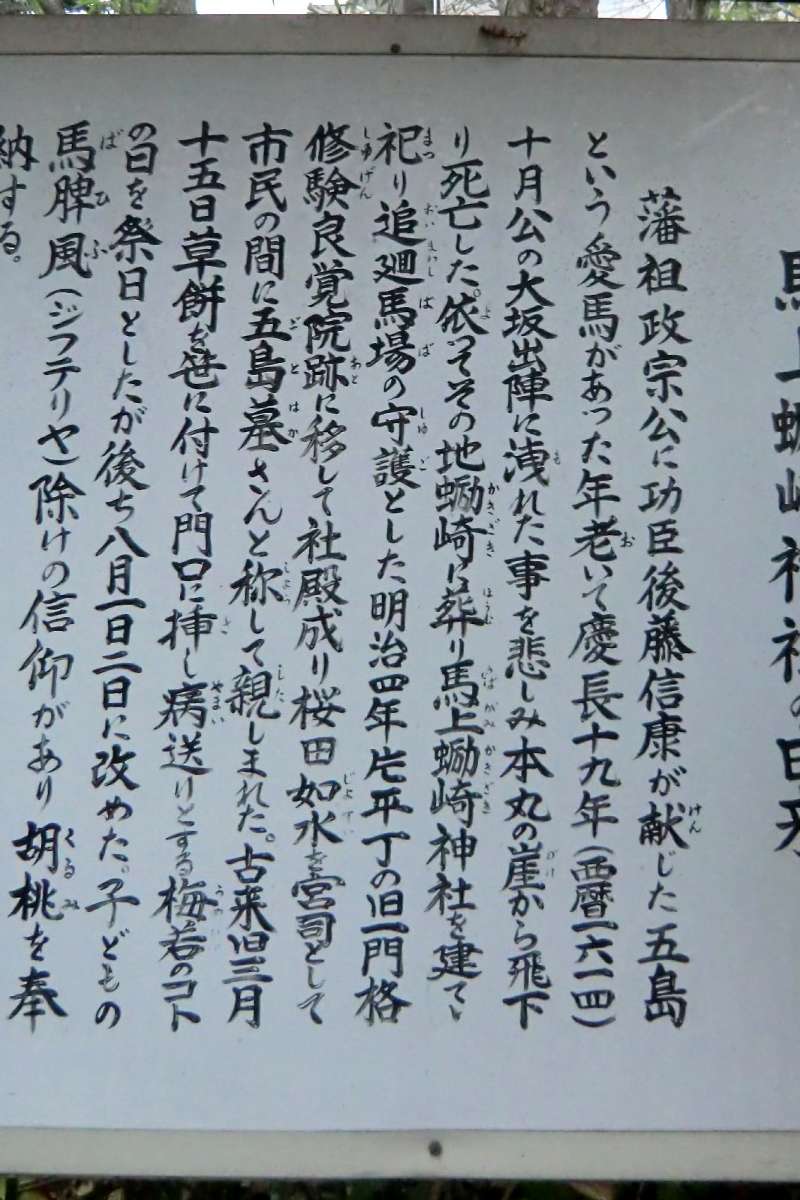 馬上蛎崎神社の由来
藩祖政宗公に功臣後藤信康が献じた五島
という愛馬があった年老いて慶長十九年(西暦一六一四)
十月公の大坂出陣に洩れた事を悲しみ本丸の崖から飛下
り死亡した。依ってその地蛎崎に葬り馬上蛎崎神社を建てゝ
祀り追廻馬場の守護とした明治四年片平丁の旧一門格
修験良覚院跡に移して社殿成り桜田如水を宮司として
市民の間に五島墓さんと称して親しまれた。古来旧三月
十五日草餅を笹に付けて門口に挿し病送りとする梅若のコト
の日を祭日としたが後ち八月一日二日に改めた。子どもの
馬脾風(ジフテリヤ)除けの信仰があり胡桃を奉
納する。